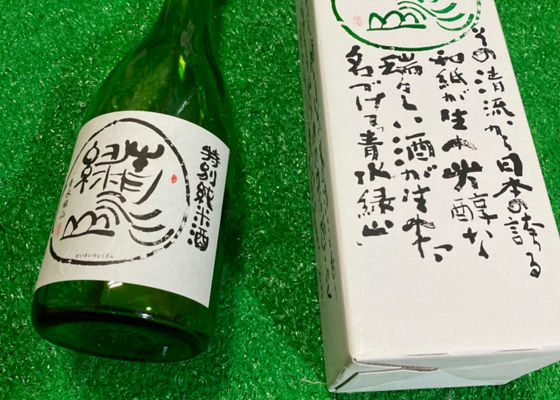 特別純米酒
青水緑山
その清流から日本の誇る
和紙が生れ芳醇な
瑞々しい酒が生れた
名づけて青水緑山